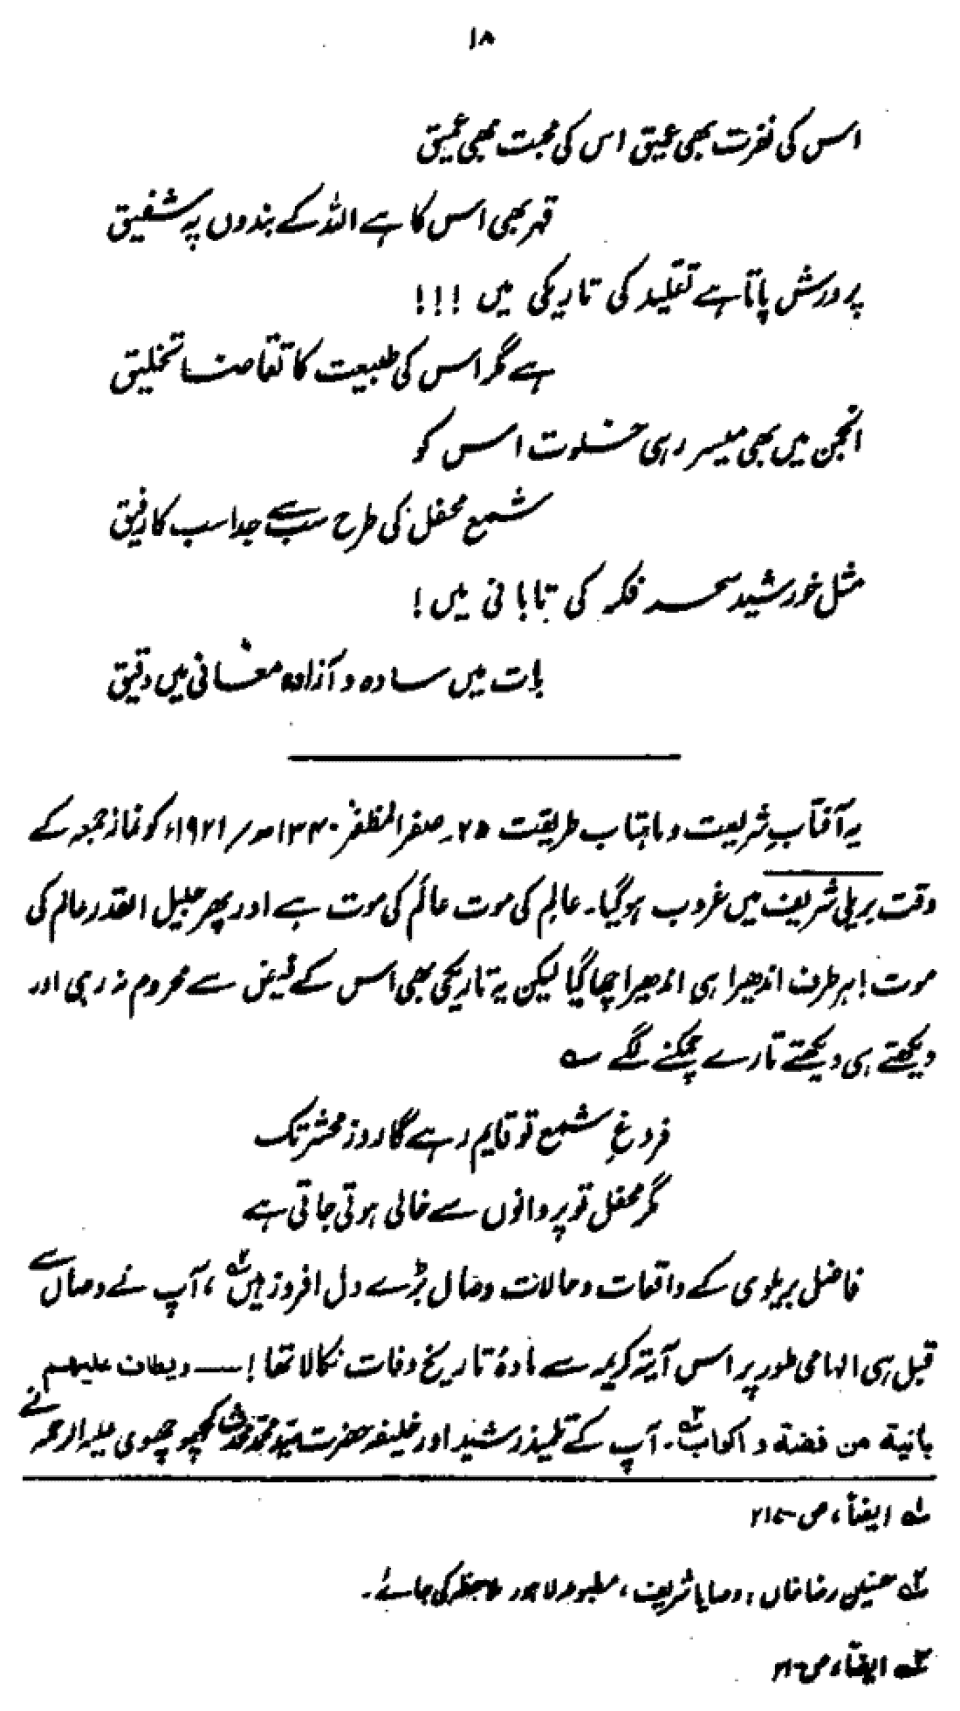 ۱۸
اس کی نفرت بھی عمیق اس کی محبت بھی عمیق
قہر بھی اس کا ہے اللہ کے بندوں پہ شفیق
پرورش پاتا ہے تقلید کی تاریکی میں !!!
ہے مگر اس کی طبیعت کا تقاضا تخلیق
انجمن میں بھی میسر رہی خلوت اس کو
شمع محفل کی طرح سب سے جدا سب کا رفیق
مثل خورشید سحر فکر کی تابانی میں !
بات میں سادہ و آزادہ معانی میں دقیق
یہ آفتابِ شریعت و ماہتاب طریقت ۲۵ر صفر المظفر ۱۳۴۰ھ / ۱۹۲۱ء کو نماز جمعہ کے
وقت بریلی شریف میں غروب ہوگیا۔ عالِم کی موت عالَم کی موت ہے اور پھر جلیل القدر عالم کی
موت ! ہر طرف اندھیرا ہی اندھیرا چھا گیا لیکن یہ تاریکی بھی اس کے فیض سے محروم نہ رہی اور
دیکھتے ہی دیکھتے تارے چمکنے لگے ؎
فروغِ شمع تو قایم رہے گا روز محشر تک
مگر محفل تو پروانوں سے خالی ہوتی جاتی ہے
فاضل بریلوی کے واقعات و حالات وصال بڑے دل افروز ہیں۲؎ ، آپ نے وصال سے
قبل ہی الہامی طور پر اس آیۃ کریمہ سے مادۂ تاریخ وفات نکالا تھا ! — ویطاف علیہم
بانیۃ من فضۃ و اکواب۳؎۔ آپ کے تلمیذ رشید اور خلیفہ حضرت سید محمد محدث کچھوچھوی علیہ الرحمہ نے
۱؎ ایضاً ، ص
۲؎ حسنین رضا خاں : وصایا شریف ، مطبوعہ لاہور ملاحظہ کی جائے ۔
۳؎ ایضاً ، ص